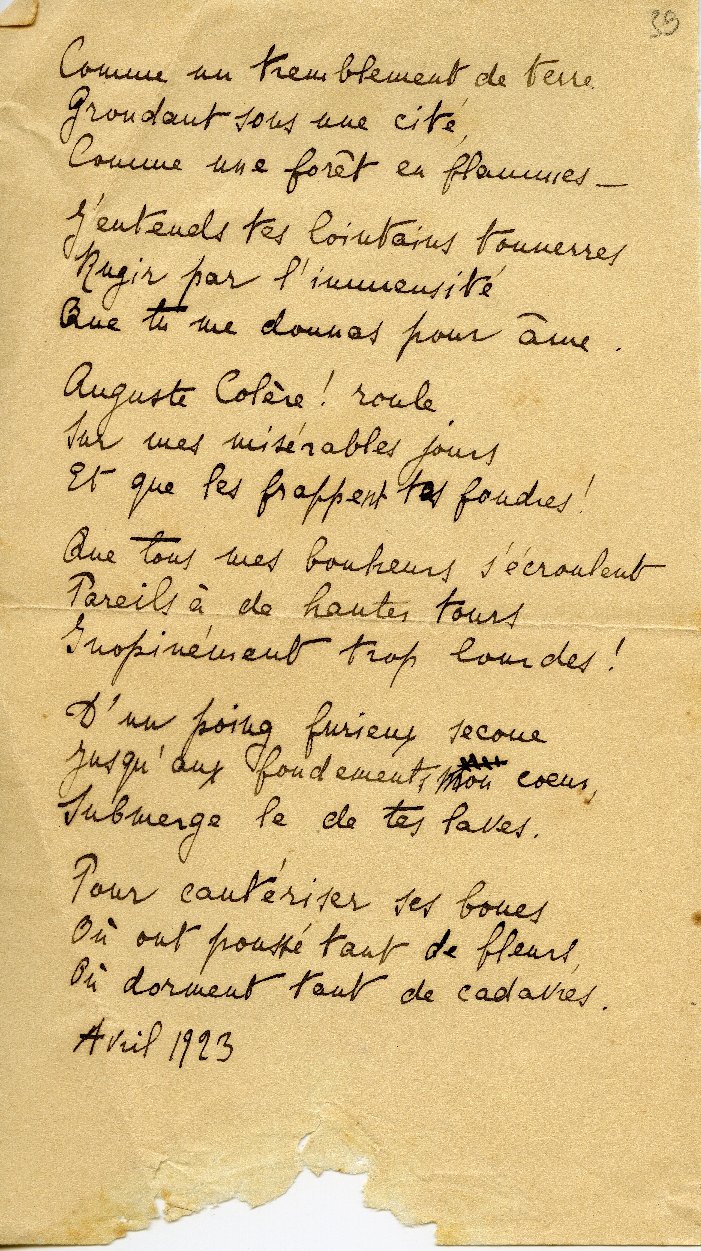 39
Comme un tremblement de terre
Grondant sous une cité,
Comme une forêt en flammes —
J'entends tes lointains tonnerres
Rugir par l'immensité
Que tu me donnas pour âme.
Auguste Colère ! roule
Sur mes misérables jours
Et que les frappent tes foudres !
Que tous mes bonheurs s'écroulent
Pareils à de hautes tours
Inopinément trop lourdes !
D'un poing furieux secoue
Jusqu'aux fondements mon coeur,
Submerge le de tes laves.
Pour cautériser ses boues
Où ont poussé tant de fleurs,
Où dorment tant de cadavres.
Avril 1923